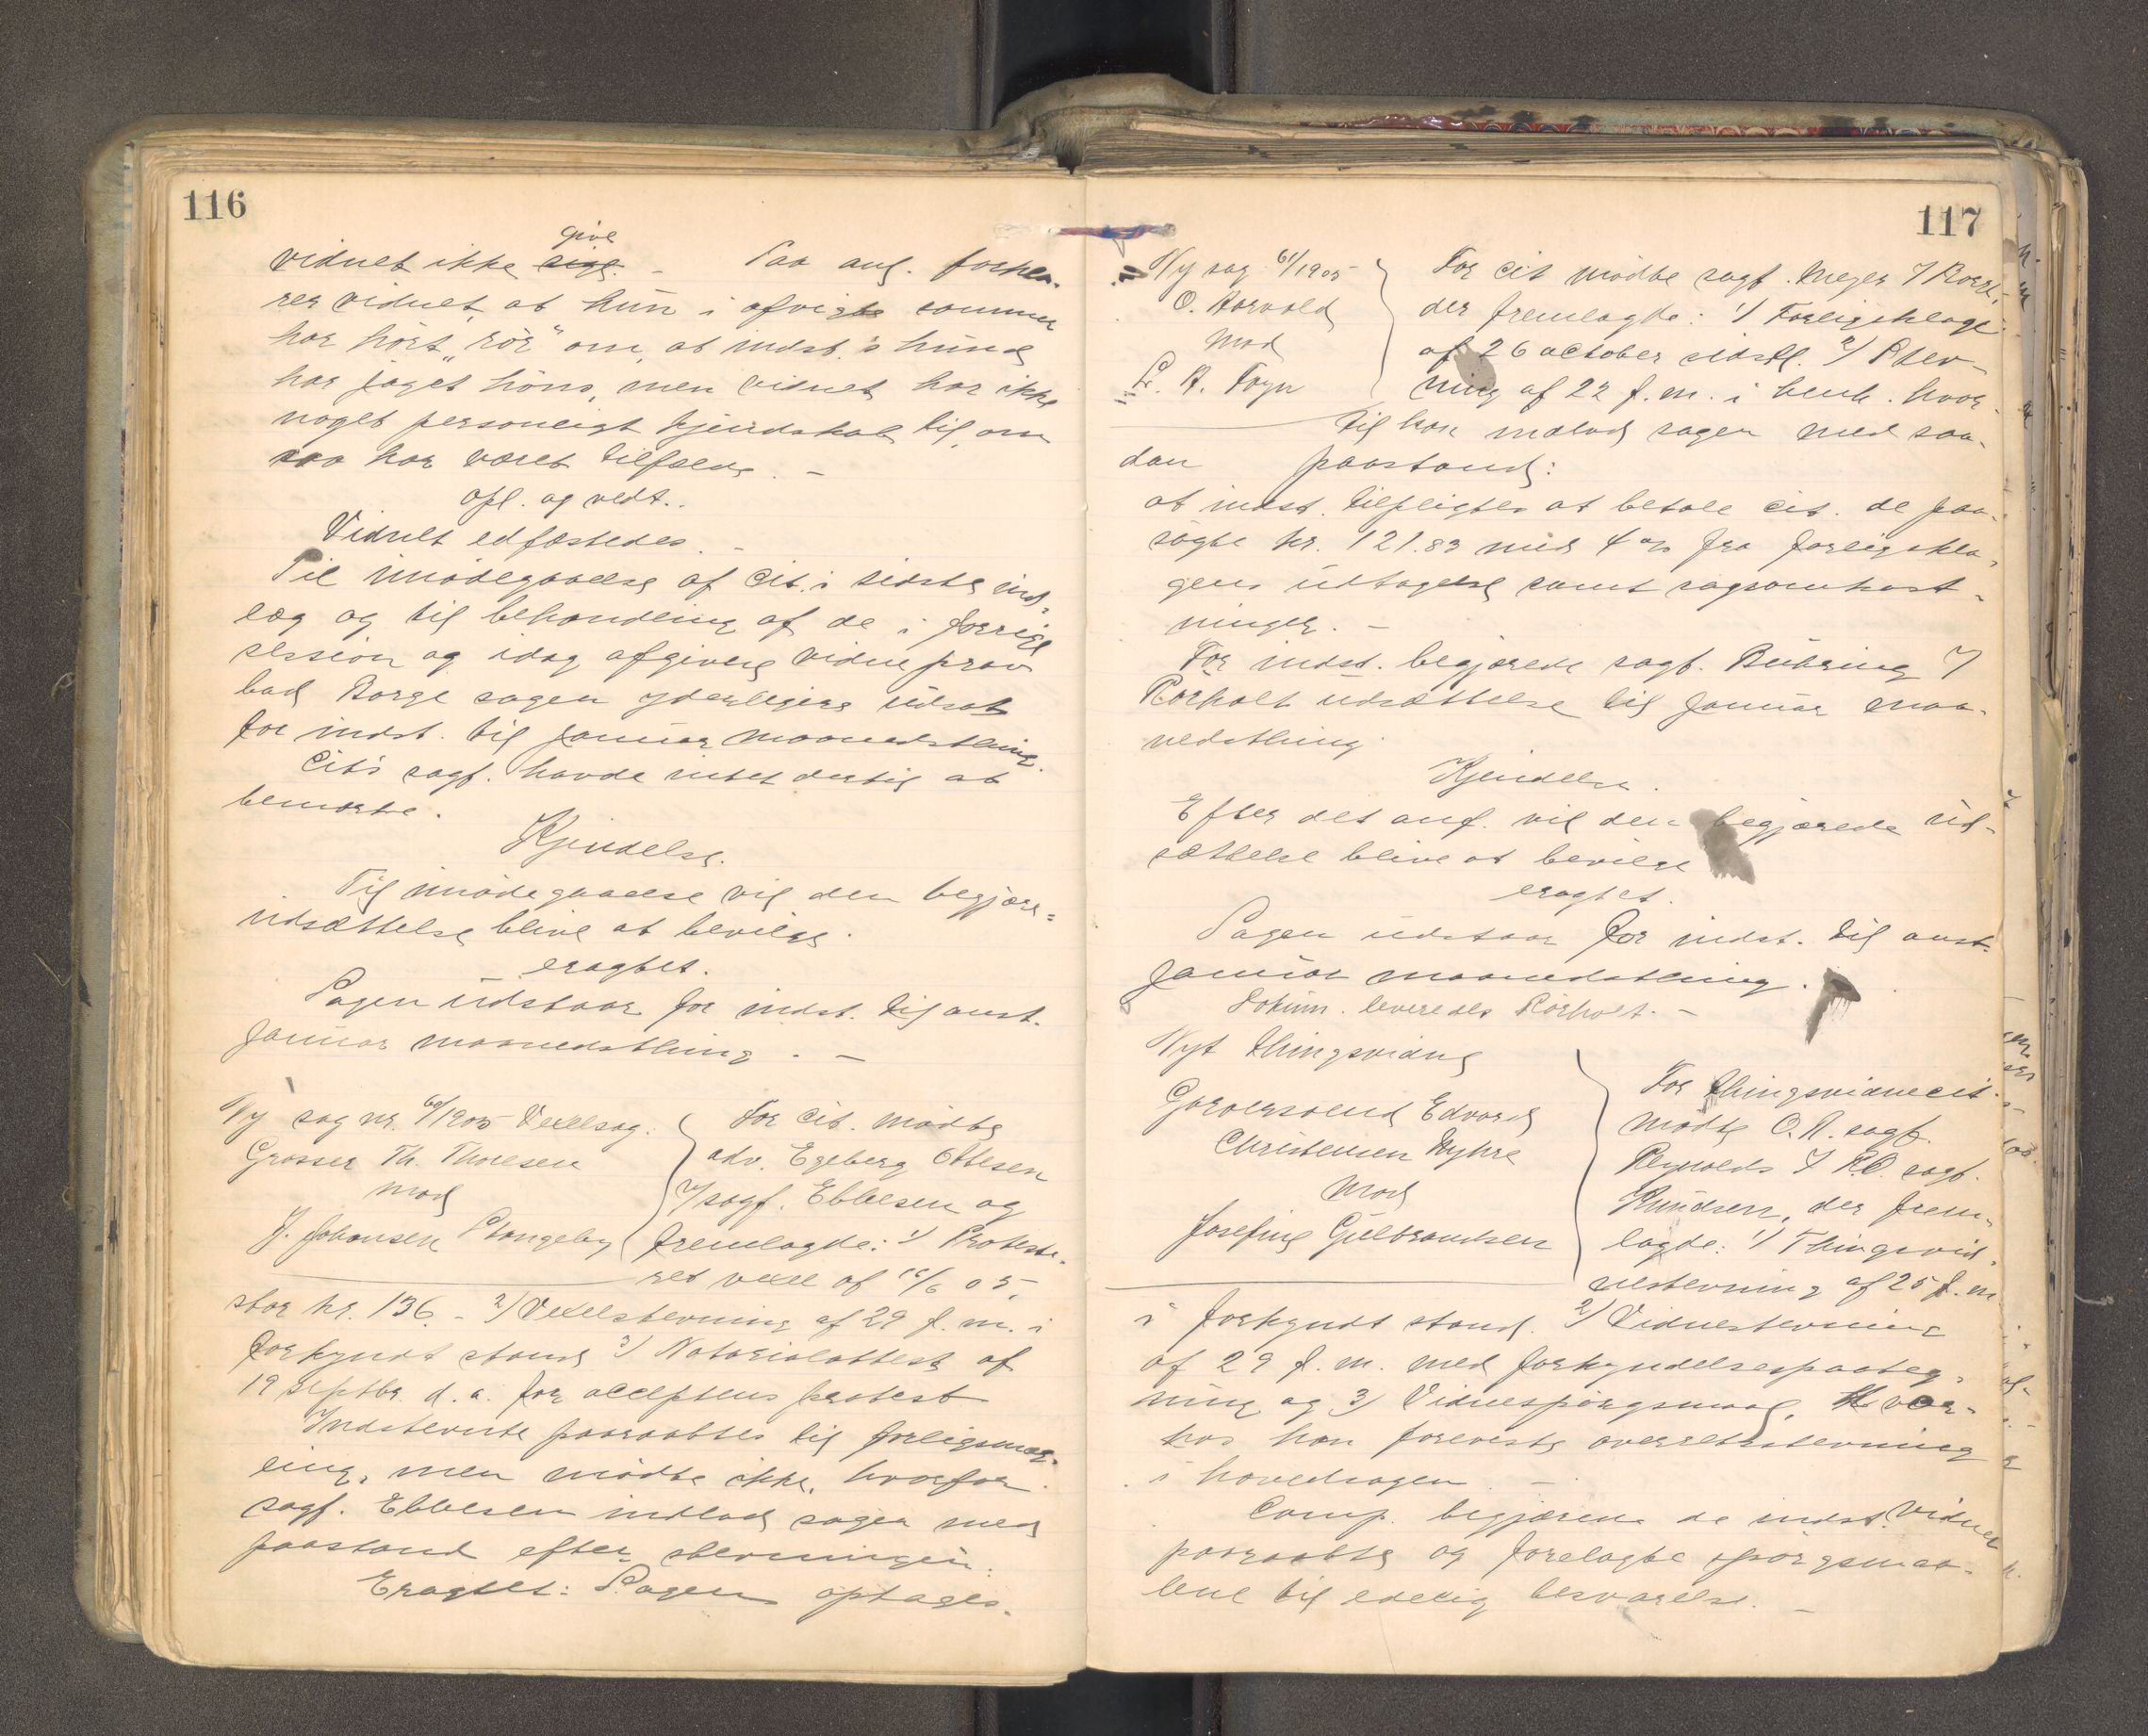 116
give
vidnet ikke sige. - Paa anf. forkla-
rer vidnet, at hun i afvigte sommer
har hørt "rör" om, at indst.'s hund
har jaget höns, men vidnet har ikke
noget personligt kjendskab til, om
saa har været tilfælde. -
Opl. og vedt..
Vidnet edfæstedes. -
Til imødegaaelse af cit.'s sidste ind-
læg og til behandling af de i forrige
session og idag afgivne vidneprov
bad Borge sagen yderligere udsat
for indst. til januar maanedsthing.
Cit's sagf. havde intet dertil at
bemærke.
Kjendelse.
Til imødegaaelse vil den begjære=
udsættelse blive at bevilge.
eragtet.
Sagen udstaar for indst. til anst.
januar maanedsthing. -
Ny sag nr. 60/1905 Vexelsag.
Grosser Th. Thoresen
mod
J. Johansen Stangeby
For cit. mødte
adv. Egeberg Ottesen
v/sagf. Ebbesen og
fremlagde: 1) Proteste-
ret vexel af 16/6 05,
stor kr. 136. - 2) Vexelstevning af 29 f. m. i
forkyndt stand 3) Notarialattest af
19 septbr. d. a. for acceptens protest
Indstevnte paaraabtes til forligsmæg-
ling, men mødte ikke, hvorfor
sagf. Ebbesen indlod sagen med
paastand efter stevningen.
Eragtet: Sagen optages.
117
Ny sag 61/1905
O. Aarvold
mod
L. A. Foyn
For cit mødte sagf. Meyer v/ Borge,
der fremlagde: 1) Forligsklage
af 26 october sidstl. 2) Stev-
ning af 22 f. m. i beh. hvor-
til han indlod sagen med saa-
dan paastand:
at indst. tilpligtes at betale cit. de paa-
søgte kr. 121.83 med 4 % fra forligskla-
gens udtagelse samt sagsomkost-
ninger. -
For indst. begjærede sagf. Bühring v/
Rörholt udsættelse til januar maa-
nedsthing.
Kjendelse.
Efter det anf. vil den begjærede ud-
sættelse blive at bevilge
eragtet.
Sagen udstaar for indst. til anst.
januar maanedsthing.
Dokum. leveredes Rörholt. -
Nyt thingsvidne
Garversvend Edvard
Christensen Myhre
mod
Josefine Gulbrandsen
For thingsvidnecit.
mødte O.R. sagf.
Reynolds v/ O. sagf.
Knudsen, der frem-
lagde: 1) Thingsvid-
nestevning af 25 f. m
i forkyndt stand. 2) Vidnestevning
af 29 f. m. med forkyndelsespaateg-
ning og 3) Vidnespørgsmaal. Hvor-
hos han foreviste overretsstevning
i hovedsagen. -
Comp. begjærede de indst. vidner
paaraabte og forelagte spørgsmaa-
lene til edelig besvarelse. -